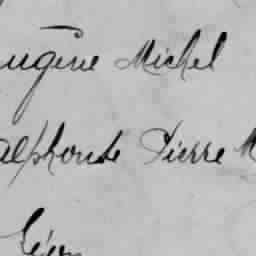 Eugène Michel
alphonse Pierre M
Léon